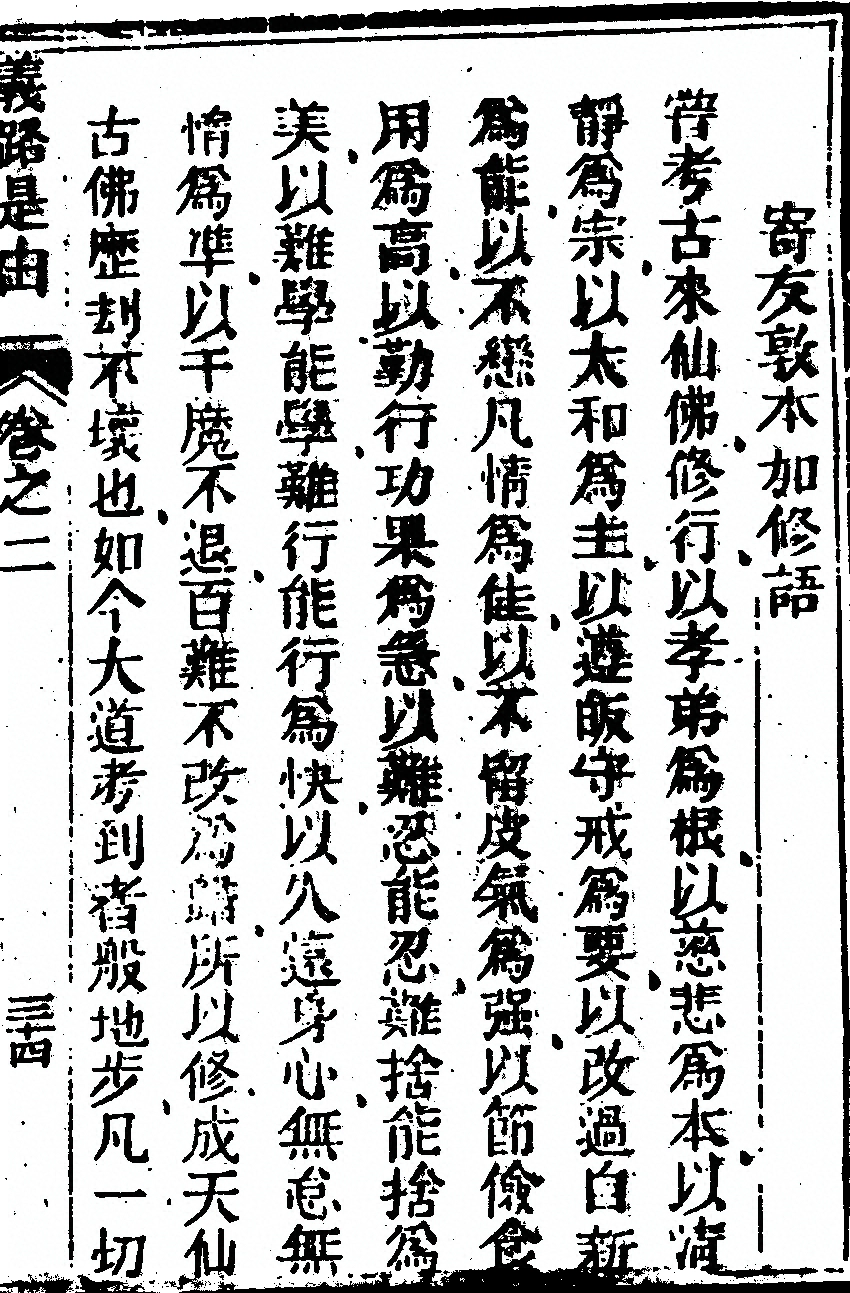 寄友敦本加修語
嘗考古來仙佛修行以孝弟爲根以慈悲爲本以淸
靜爲宗以太和爲主以遵皈守戒爲要以改過自新
爲能以不戀凡情爲佳以不留皮氣爲强以節儉食
用爲高以勤行功果爲急以難忍能忍難捨能捨爲
美以難學能學難行能行爲快以久遠身心無怠無
惰爲準以千魔不退百難不改爲歸所以修成天仙
古佛歷刼不壞也如今大道考到者般地步凡一切
義路是由 卷之二 三十四